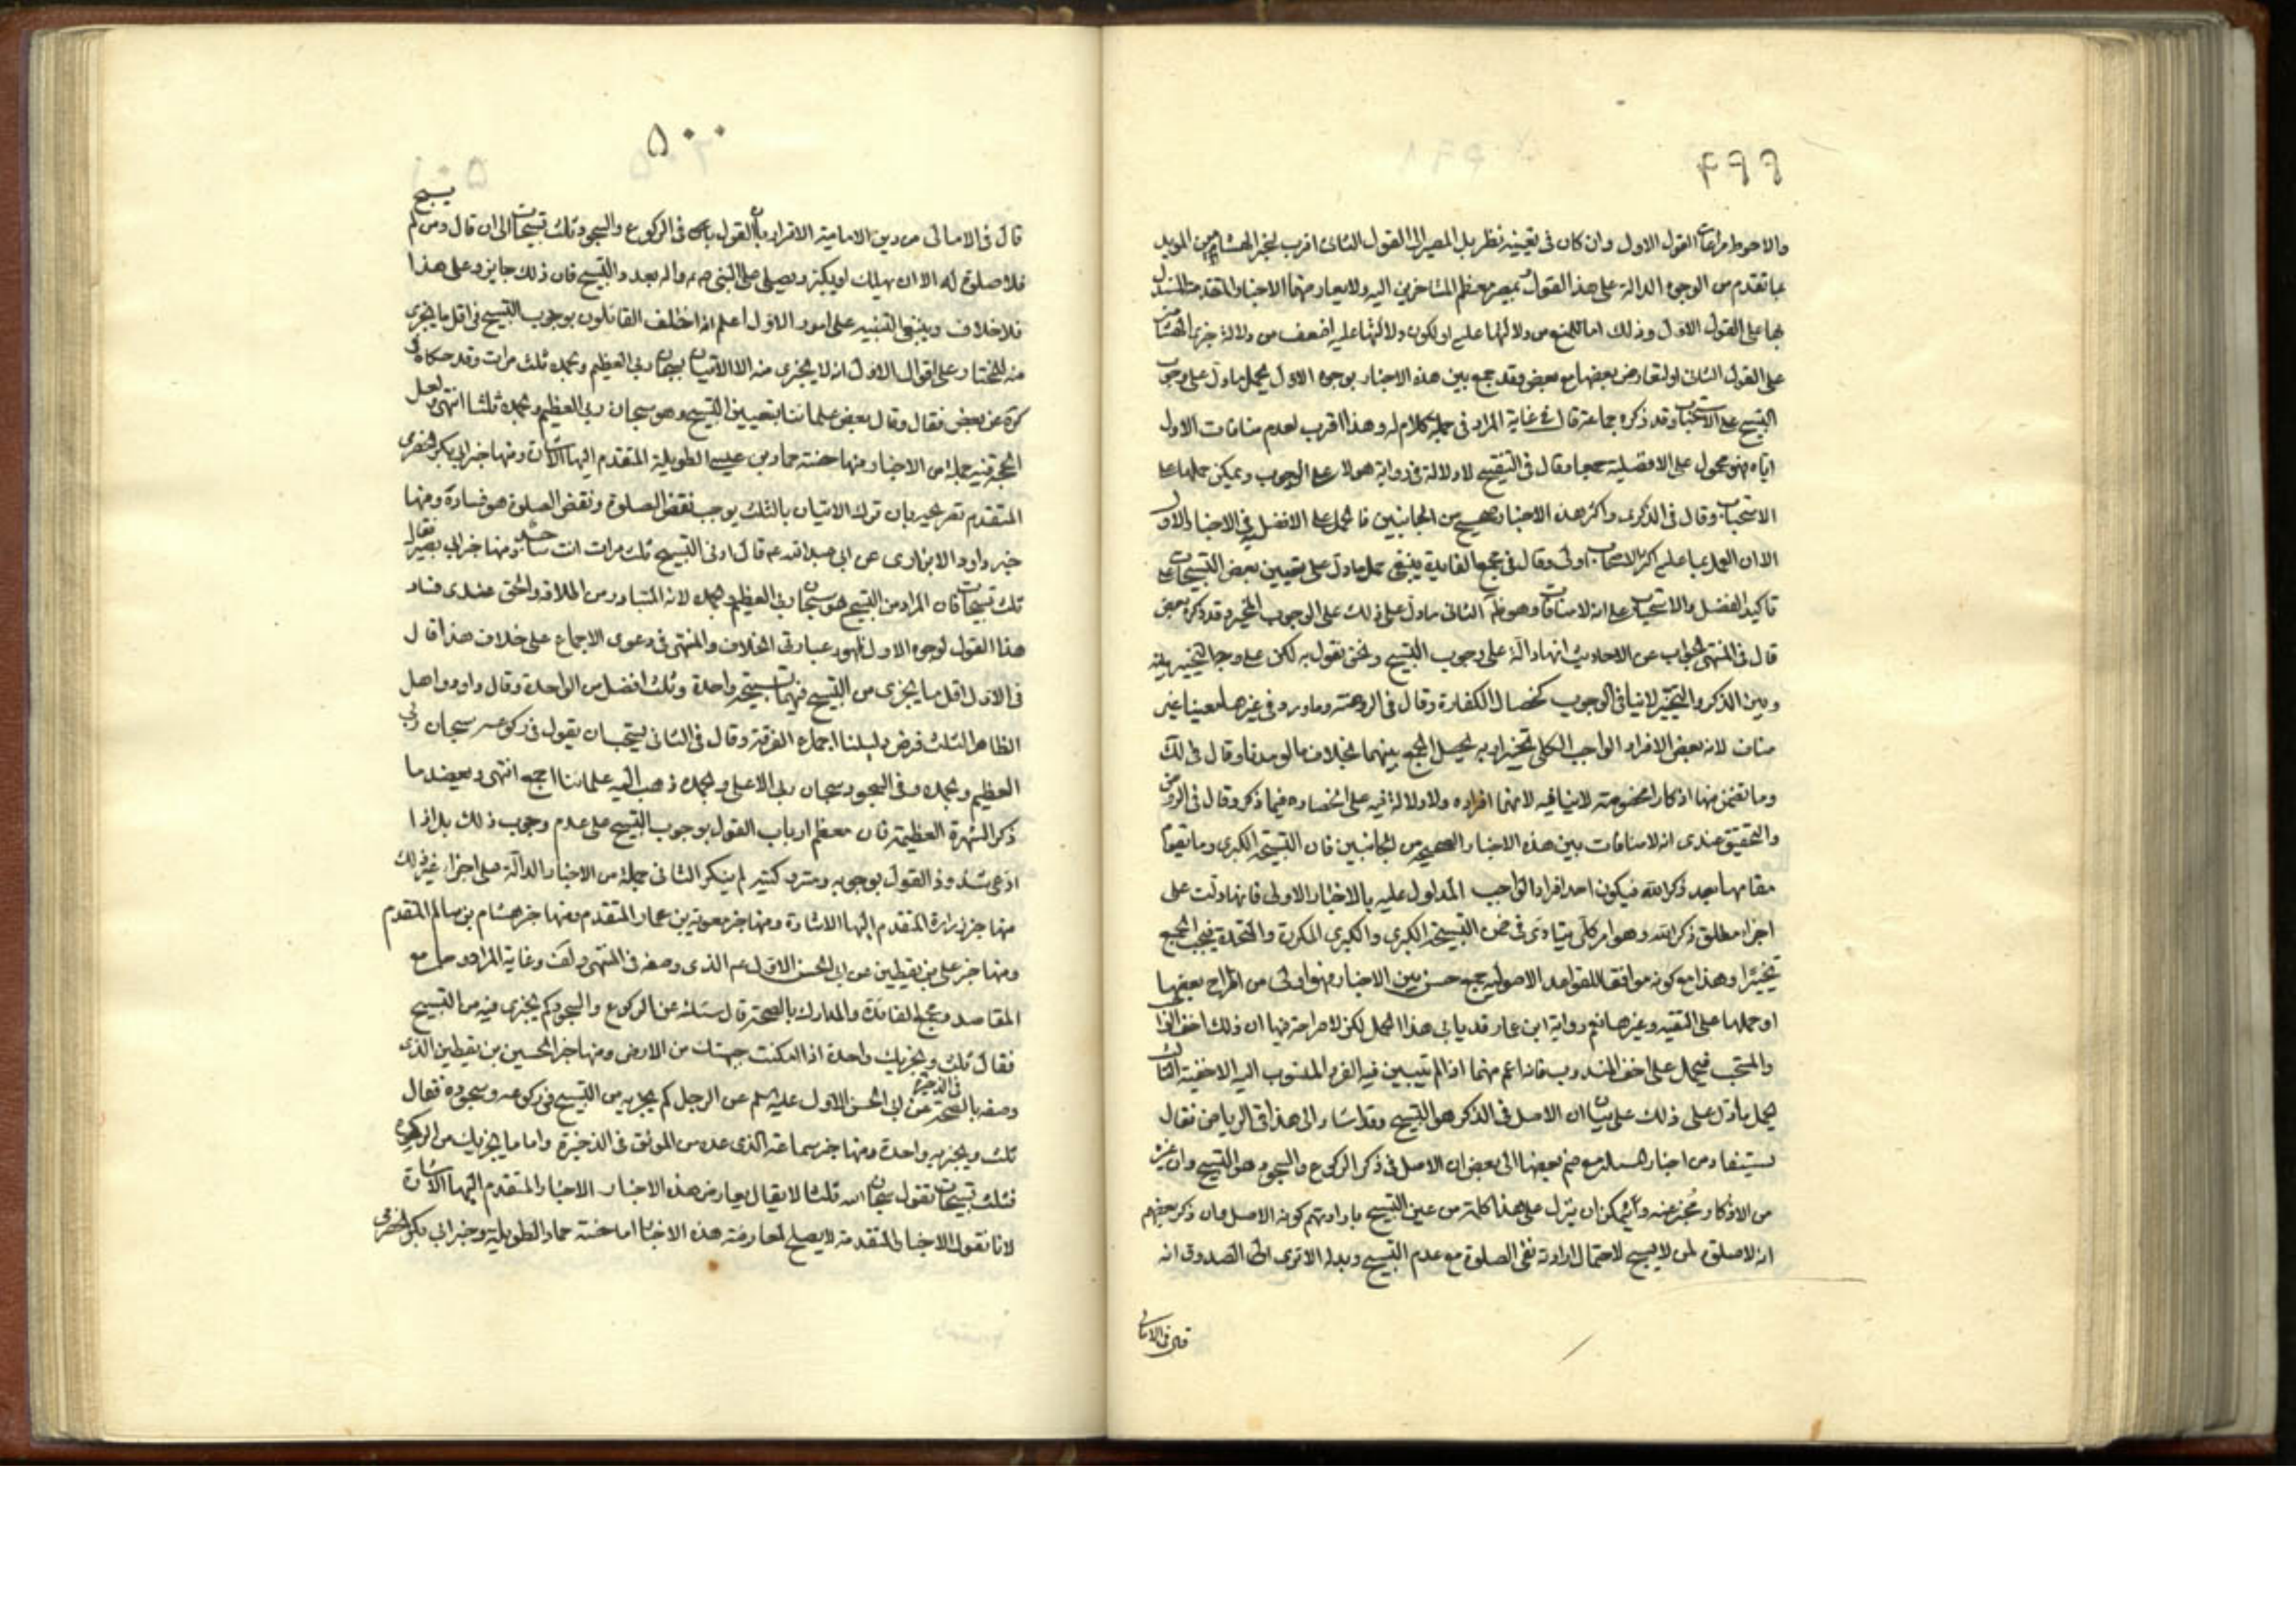 ۴۹۹
والاحوط مراعات القول الاول وان كان فى تعيينه نظر بل المصير الى القول الثانى اقرب لخبر الهشامين المويد
بما تقدم من الوجوه الدالة على هذا القول بمصير معظم المتاخرين اليه ولا يعارضها الاخبار المتقدمة المستدل
بها على القول الاول وذلك اما للمنع من دلالتها عليه او لكون دلالتها عليه اضعف من دلالة خبرى الهشامين
على القول الثانى او لتعارض بعضها مع بعض وقد جمع بين هذه الاخبار بوجوه الاول يحمل ما دل على وجوب
التسبيح على الاستحباب وقد ذكره جماعة قال فى غاية المراد فى جملة كلام له وهذا اقرب لعدم منافات الاول
اياه فهو محمول على الافضلية جمعا وقال فى التنقيح لا دلالة فى رواية هولاء على الوجوب ويمكن حملها على
الاستحباب وقال فى الذكرى واكثر هذه الاخبار صحيح من الجانبين فالحمل على الافضل فى الاخبار الاول
الا ان العمل بما عليه اكثر الاصحاب اولى وقال فى مجمع الفايدة ينبغى حمل ما دل على تعيين بعض التسبيحات على
تاكيد الفضل والاستحباب على انه لا منافات وهو ظ الثانى ما دل على ذلك على الوجوب المخير وقد ذكره بعض
قال فى المنتهى الجواب عن الاحاديث انها دالة على وجوب التسبيح ونحن نقول به لكن على وجه التخيير بينه
وبين الذكر والتخيير لا ينافى الوجوب كخصال الكفارة وقال فى الروضة وما ورد فى غيرها معينا غير
مناف لانه بعض الافراد الواجب الكلى تخييرا وبه يحصل الجمع بينهما بخلاف ما لو قيدناه وقال فى لك
وما تضمن منها اذكارا مخصوصة لا ينافيه لانها افراده ولا دلالة فيه على انحصاره فيما ذكر وقال فى الروض
والتحقيق عندى انه لا منافات بين هذه الاخبار الصحيحة من الجانبين فان التسبيحة الكبرى وما يقوم
مقامها بعد ذكر الله فيكون احد افراد الواجب المدلول عليه بالاخبار الاولى فانها دلت على
اجزاء مطلق ذكر الله وهو امر كلى يتادى فى ضمن التسبيحة الكبرى والكبرى المكررة والمتحدة فيجب الجميع
تخييرا وهذا مع كونه موافقا للقواعد الاصولية جمع حسن بين الاخبار فهو اولى من اطراح بعضها
او حملها على التقية وغيرها نعم رواية ابن عمار قد يابى هذا الحمل لكن لا صراحة فيها ان ذلك اخف الواجب
والمستحب فيحمل على اخف المندوب فانه اعم منهما اذ لم يتبين فيه الفرد المنسوب اليه الاخفية الثالث
يحمل ما دل على ذلك على بيان ان الاصل فى الذكر هو التسبيح وقد اشار الى هذا فى الرياض فقال
يستفاد من اخبار المسئلة مع ضم بعضها الى بعض ان الاصل فى ذكر الركوع والسجود هو التسبيح وان غيره
من الاذكار مجز عنه وانه يمكن ان ينزل على هذا كلمة من عين التسبيح بارادتهم كونه الاصل فان ذكر بعضهم
انه لا صلوة لمن لا يسبح لاحتمال ارادته نفى الصلوة مع عدم التسبيح وبدله الا ترى الى الصدوق انه
قال فى الامالى
۵۰۰
يسبح
قال فى الامالى من دين الامامية الاقرار بان القول فى الركوع والسجود ثلث تسبيحات الى ان قال ومن لم
فلا صلوة له الا ان يهلل او يكبر ويصلى على النبى ص واله بعدد التسبيح فان ذلك جايز وعلى هذا
فلا خلاف وينبغى التنبيه على امور الاول اعلم انه اختلف القائلون بوجوب التسبيح فى اقل ما يجزى
منه للمختار على اقوال الاول انه لا يجزى منه الا الاتيان بسبحان ربى العظيم وبحمده ثلث مرات وقد حكاه فى
كره عن بعض فقال وقال بعض علمائنا بتعيين التسبيح وهو سبحان ربى العظيم وبحمده ثلثا انتهى ولعل
الحجة فيه جملة من الاخبار منها حسنة حماد بن عيسى الطويلة المتقدم اليها الاشارة ومنها خبر ابى بكر الحضرمى
المتقدم تصريحه بان ترك الاتيان بالثلث يوجب نقض الصلوة ونقض الصلوة هو فسادها ومنها
خبر داود الابزارى عن ابى عبد الله ع قال ادنى التسبيح ثلث مرات انت ساجد ومنها خبر ابى بصير قال
ثلث تسبيحات فان المراد من التسبيح هو سبحان ربى العظيم وبحمده لانه المتبادر من اطلاقه والحق عندى فساد
هذا القول لوجوه الاول ظهور عبارتى الخلاف والمنتهى فى دعوى الاجماع على خلاف هذا قال
فى الاول اقل ما يجزى من التسبيح فيهما تسبيحة واحدة وثلث افضل من الواحدة وقال داود واهل
الظاهر الثلث فرض دليلنا اجماع الفرقة وقال فى الثانى يستحب ان يقول فى ركوعه سبحان ربى
العظيم وبحمده وفى السجود سبحان ربى الاعلى وبحمده ذهب اليه علمائنا اجمع انتهى ويعضد ما
ذكر الشهرة العظيمة فان معظم ارباب القول بوجوب التسبيح على عدم وجوب ذلك بل اذا
ادعى شذوذ القول بوجوبه ومترد كثير لم ينكر الثانى جملة من الاخبار الدالة على اجزاء غير ذلك
منها خبر زرارة المتقدم اليها الاشارة ومنها خبر معوية بن عمار المتقدم ومنها خبر هشام بن سالم المتقدم
ومنها خبر على بن يقطين عن ابى الحسن الاول عم الذى وصفه فى المنتهى ولف وغاية المراد وجامع
المقاصد ومجمع الفائدة والمدارك بالصحة قال سئلته عن الركوع والسجود كم يجزى فيه من التسبيح
فقال ثلث ويجزيك واحدة اذا امكنت جبهتك من الارض ومنها خبر الحسين بن يقطين الذى
وصفه بالصحة فى الذخيرة عن ابى الحسن الاول عليه السلم عن الرجل كم يجزيه من التسبيح فى ركوعه وسجوده فقال
ثلث ويجزيه واحدة ومنها خبر سماعة الذى عده من الموثق فى الذخيرة واما ما يجزيك من الركوع
فثلث تسبيحات تقول سبحان الله ثلثا لا يقال يعارض هذه الاخبار الاخبار المتقدم اليها الاشارة
لانا نقول الاخبار المتقدمة لا يصلح لمعارضة هذه الاخبار اما حسنة حماد الطويلة وخبر ابى بكر الحضرمى